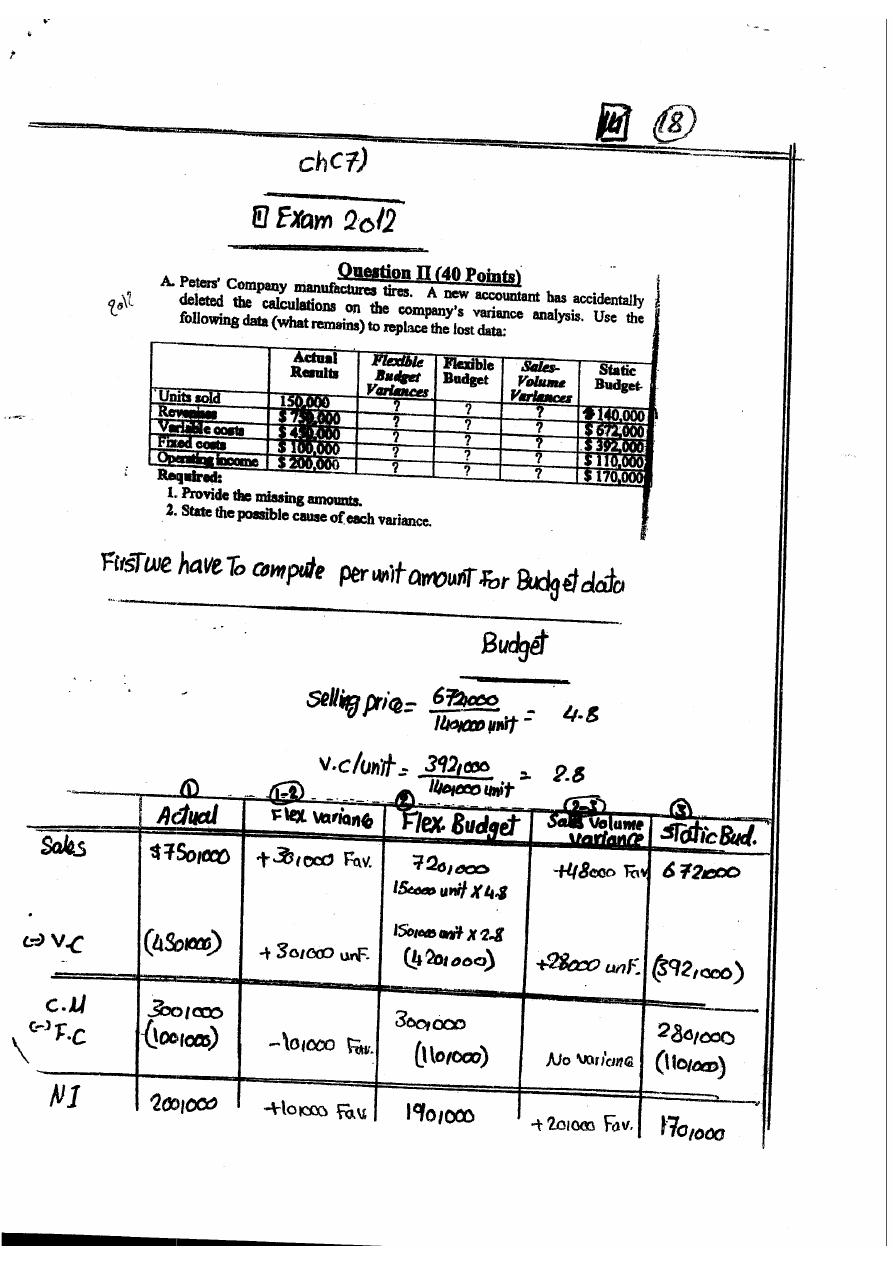 18
ch(7)
1 Exam 2012
Question II (40 Points)
2012
A. Peters' Company manufactures tires. A new accountant has accidentally
deleted the calculations on the company's variance analysis. Use the
following data (what remains) to replace the lost data:
Actual Results Flexible Budget Variances Flexible Budget Sales-Volume Variances Static Budget
Units sold 150,000 ? ? ? 140,000
Revenues $ 750,000 ? ? ? $ 672,000
Variable costs $ 450,000 ? ? ? $ 392,000
Fixed costs $ 100,000 ? ? ? $ 110,000
Operating income $ 200,000 ? ? ? $ 170,000
Required:
1. Provide the missing amounts.
2. State the possible cause of each variance.
First we have To compute per unit amount For Budget data
Budget
selling price = 672,000 / 140,000 unit = 4.8
V.c/unit = 392,000 / 140,000 unit = 2.8
1 1-2 2 2-3 3
Actual Flex variance Flex. Budget Sales Volume variance Static Bud.
Sales $750,000 +30,000 Fav. 720,000 +48000 Fav 672,000
150000 unit X 4.8
150,000 unit X 2.8
(-) V.C (450,000) +30,000 unF. (420,000) +28000 unF. (392,000)
C.M 300,000 300,000 280,000
(-) F.C (100,000) -10,000 Fav. (110,000) No variance (110,000)
NI 200,000 +10,000 Fav 190,000 +20,000 Fav. 170,000